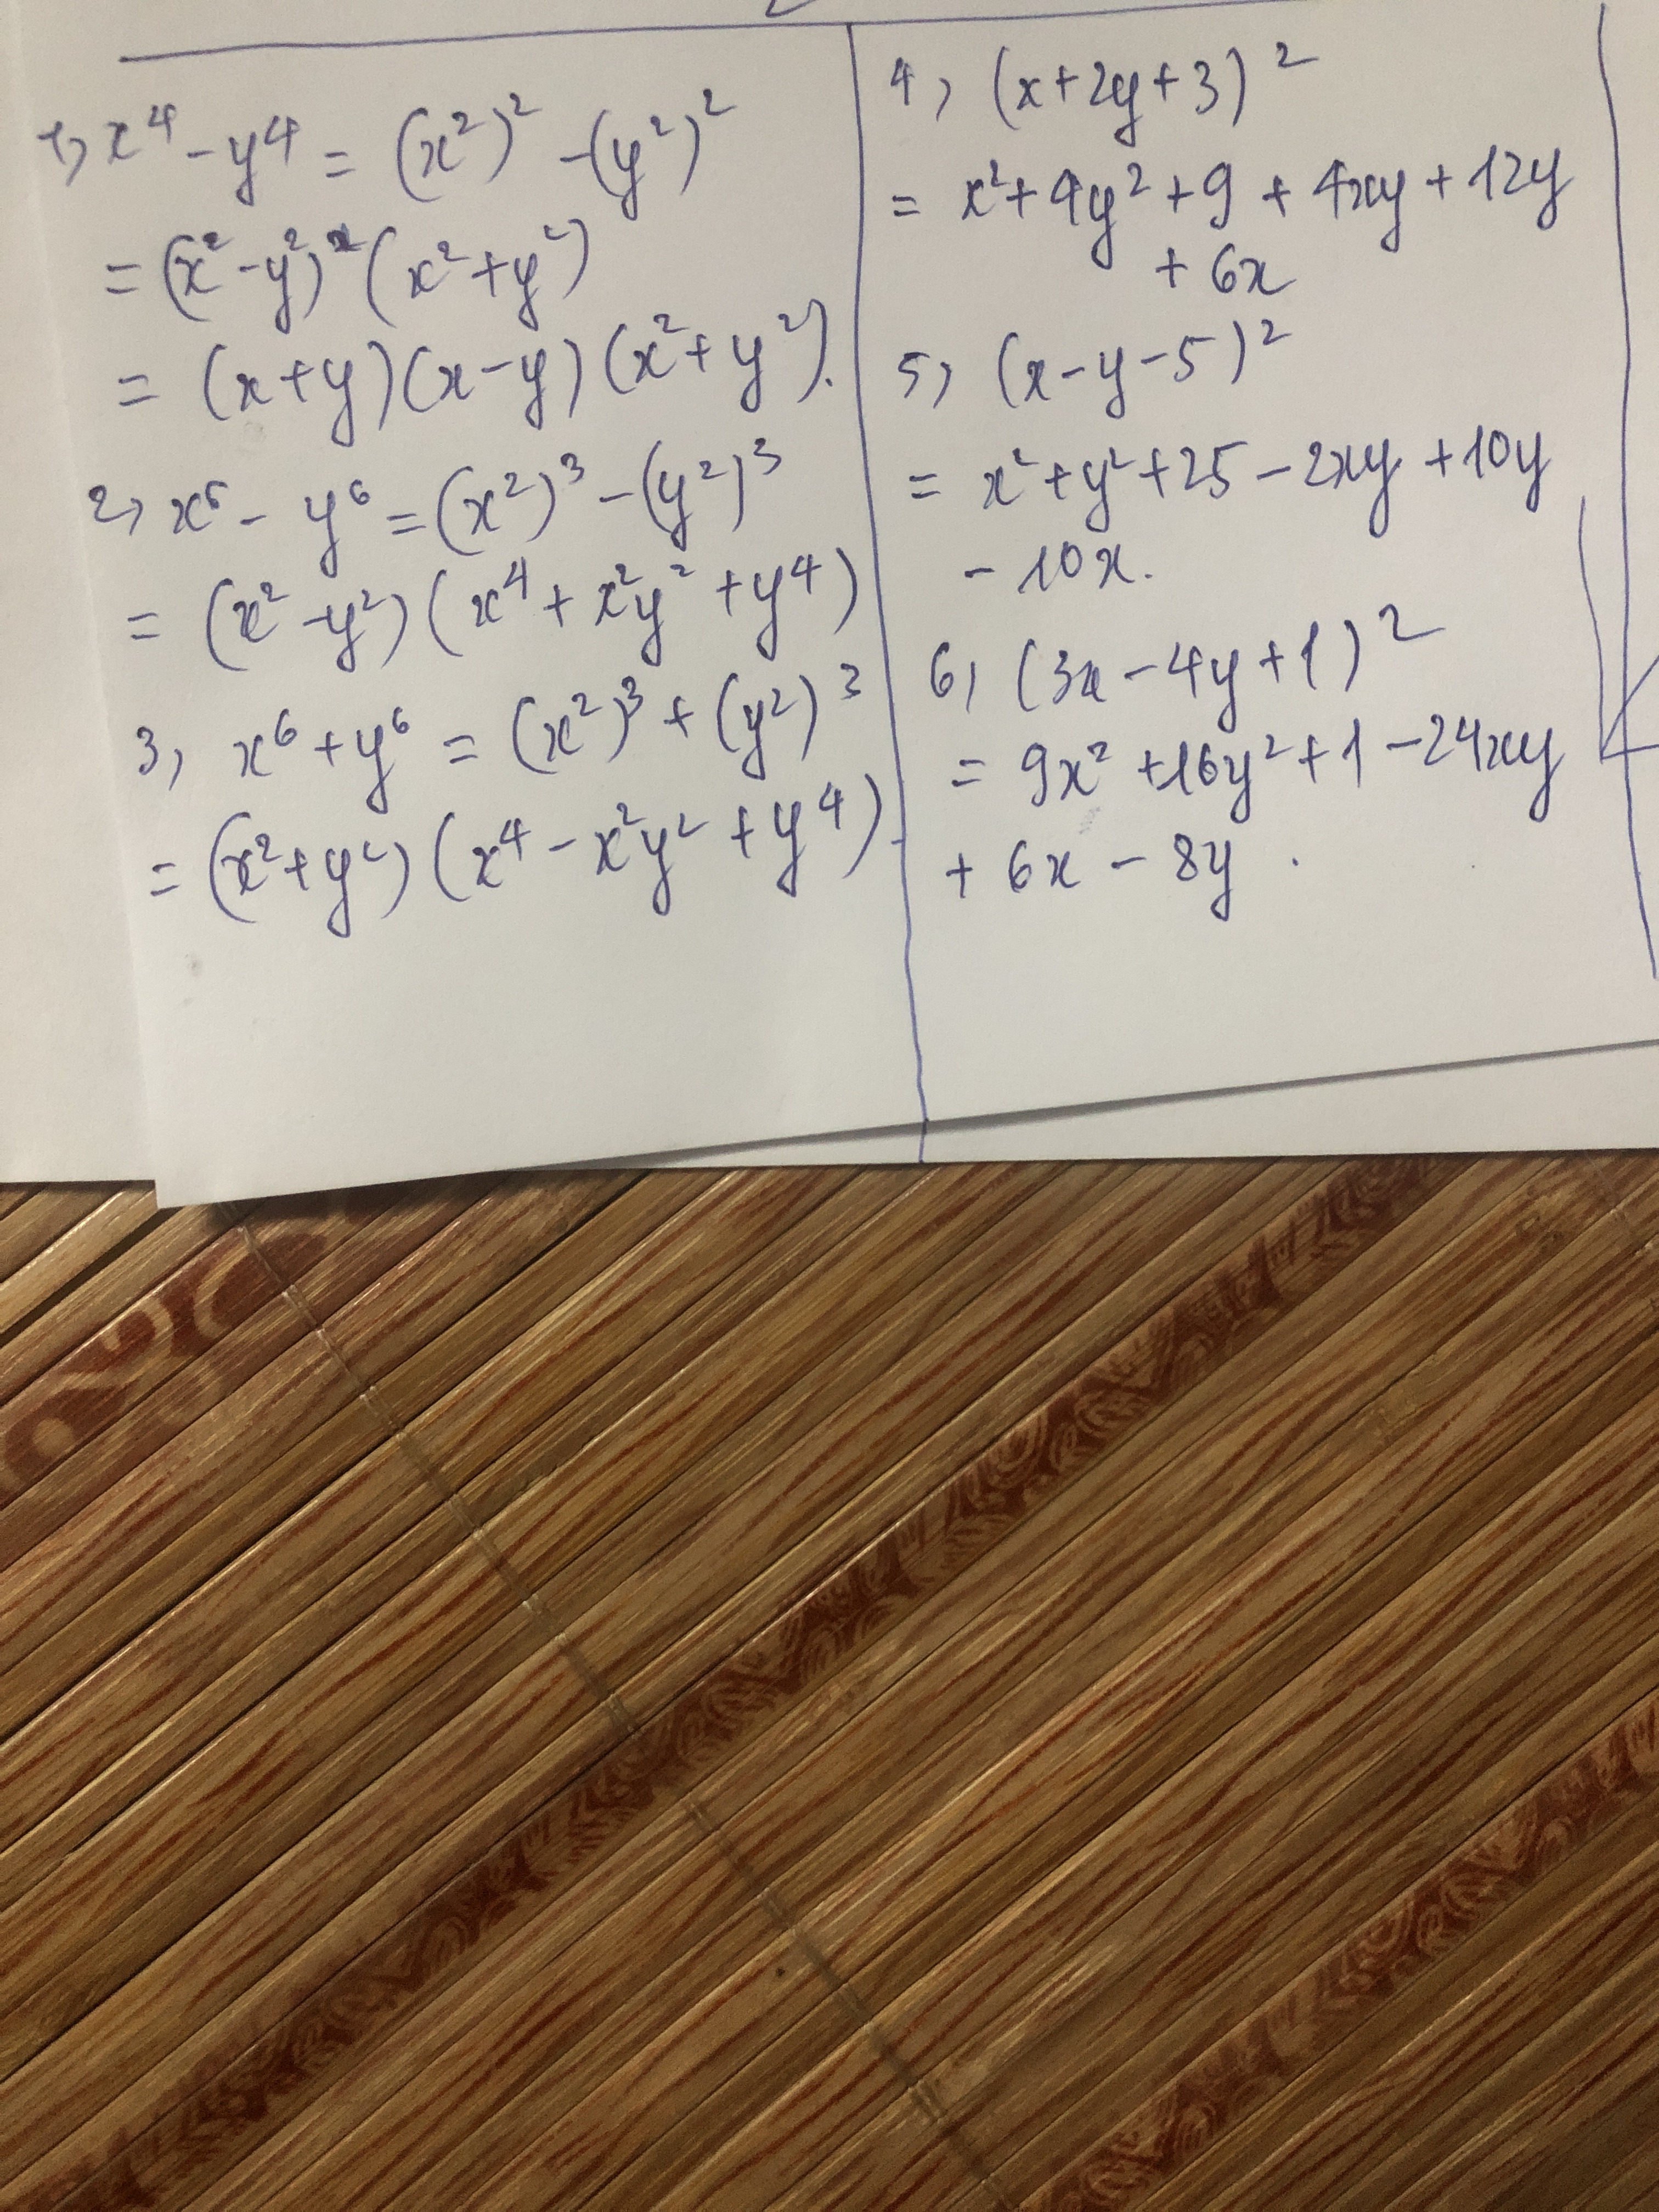 1, x⁴ - y⁴ = (x²)² - (y²)²
= (x² - y²) (x² + y²)
= (x + y)(x - y)(x² + y²).
2, x⁶ - y⁶ = (x²)³ - (y²)³
= (x² - y²) (x⁴ + x²y² + y⁴)
3, x⁶ + y⁶ = (x²)³ + (y²)³
= (x² + y²) (x⁴ - x²y² + y⁴).
4, (x + 2y + 3)²
= x² + 4y² + 9 + 4xy + 12y
+ 6x
5, (x - y - 5)²
= x² + y² + 25 - 2xy + 10y
- 10x.
6, (3x - 4y + 1)²
= 9x² + 16y² + 1 - 24xy
+ 6x - 8y .